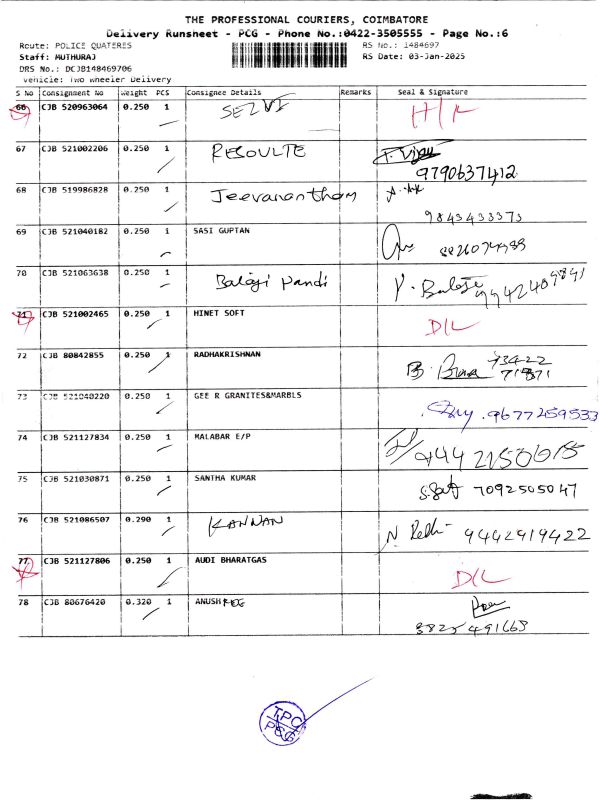 THE PROFESSIONAL COURIERS, COIMBATORE
Delivery Runsheet - PCG - Phone No.:0422-3505555 - Page No.:6
Route: POLICE QUATERES RS No.: 1484697
Staff: MUTHURAJ RS Date: 03-Jan-2025
DRS No.: DCJB148469706
Vehicle: Two Wheeler Delivery
S No Consignment No Weight PCS Consignee Details Remarks Seal & Signature
66 CJB 520963064 0.250 1 SELVI
67 CJB 521002206 0.250 1 RESOULTE 9790637412
68 CJB 519986828 0.250 1 Jeevanantham 9843433373
69 CJB 521040182 0.250 1 SASI GUPTAN
70 CJB 521063638 0.250 1 Balaji Pandi
71 CJB 521002465 0.250 1 HINET SOFT D/L
72 CJB 80842855 0.250 1 RADHAKRISHNAN
73 CJB 521040220 0.250 1 GEE R GRANITES&MARBLS 9677259533
74 CJB 521127834 0.250 1 MALABAR E/P
75 CJB 521030871 0.250 1 SANTHA KUMAR 7092505047
76 CJB 521086507 0.290 1 KANNAN 9442919422
77 CJB 521127806 0.250 1 AUDI BHARATGAS D/L
78 CJB 80676420 0.320 1
TPC
PCG